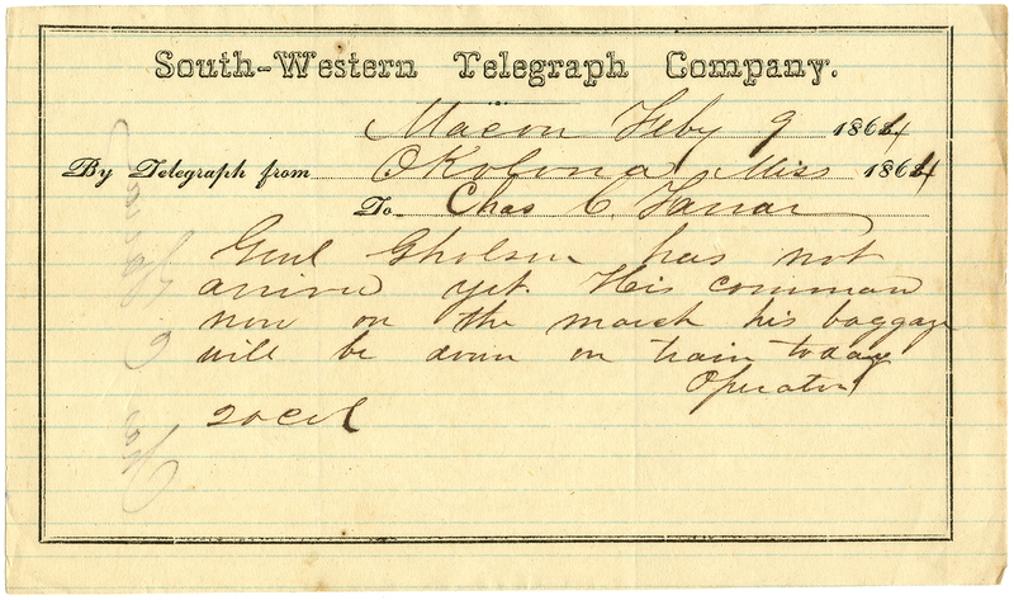 South-Western Telegraph Company.
Macon Feby 9 1864
By Telegraph from Okolona Miss 1864
To Chas C. Farrar
Genl Gholson has not
arrived yet. His comman
now on the march his baggage
will be down on train today
Operator
20 col